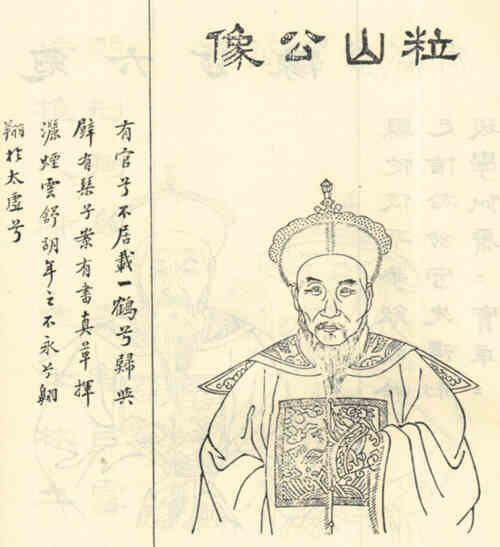 粒山公像
有官兮不居載一鶴兮歸與
壁有琹兮案有書真草揮
灑煙雲舒胡年之不永兮翱
翔於太虛兮